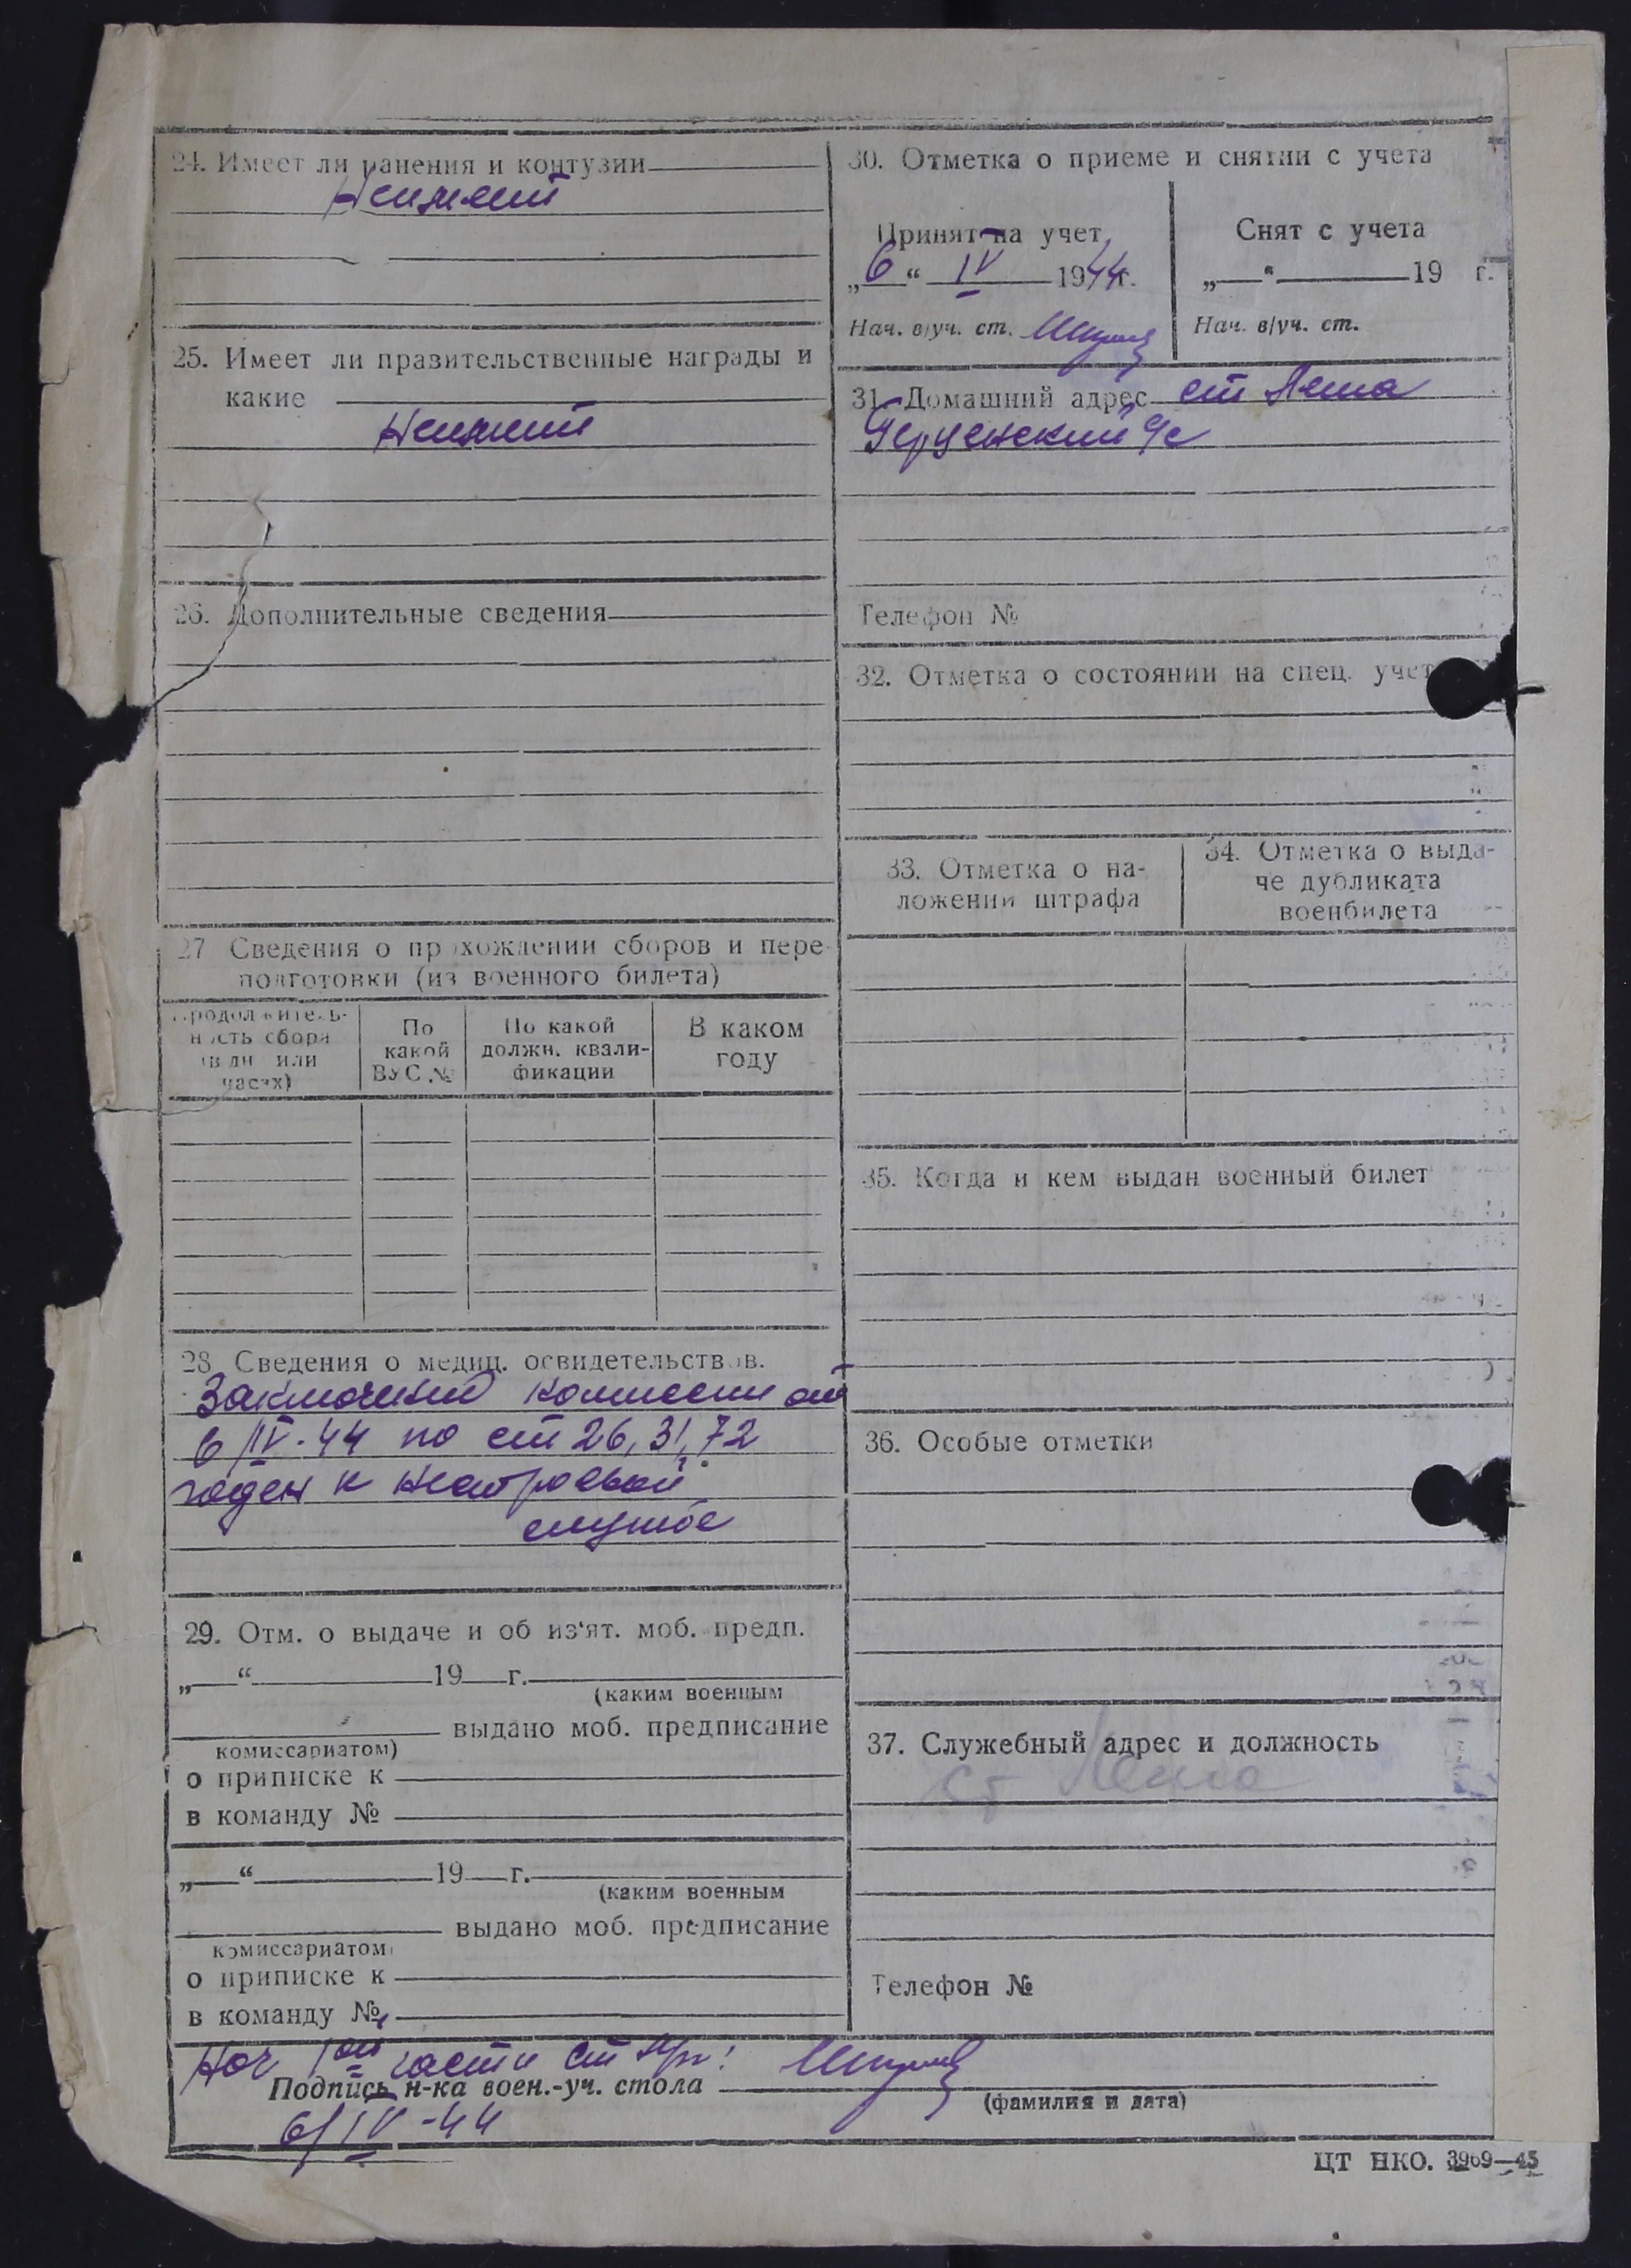 24. Имеет ли ранения и контузии
Неимеет
25. Имеет ли правительственные награды и
какие
Неимеет
26. Дополнительные сведения
27 Сведения о прохождении сборов и пере-
подготовки (из военного билета)
Продолжитель-
ность сбора
(в дн или
часах)
По
какой
ВУС №
По какой
должн. квали-
фикации
В каком
году
28. Сведения о медиц. освидетельствов.
Заключений комиссии от
6/IV-44 по ст 26, 31, 72
годен к нестроевой
службе
29. Отм. о выдаче и об из‘ят. моб. предп.
„ “ 19 г.
(каким военным
выдано моб. предписание
комиссариатом)
о приписке к
в команду №
„ “ 19 г.
(каким военным
выдано моб. предписание
комиссариатом)
о приписке к
в команду №
30. Отметка о приеме и снятии с учета
Принят на учет
„6“ IV 1944г.
Нач. в/уч. ст.
Снят с учета
„ “ 19 г.
Нач. в/уч. ст.
31. Домашний адрес ст
Телефон №
32. Отметка о состоянии на спец. учет
33. Отметка о на-
ложении штрафа
34. Отметка о выда-
че дубликата
военбилета
35. Когда и кем выдан военный билет
36. Особые отметки
37. Служебный адрес и должность
ст
Телефон №
Нач 1ой части ст
Подпись н-ка воен.-уч. стола
(фамилия и дата)
6/IV-44
ЦТ НКО. 3969—45